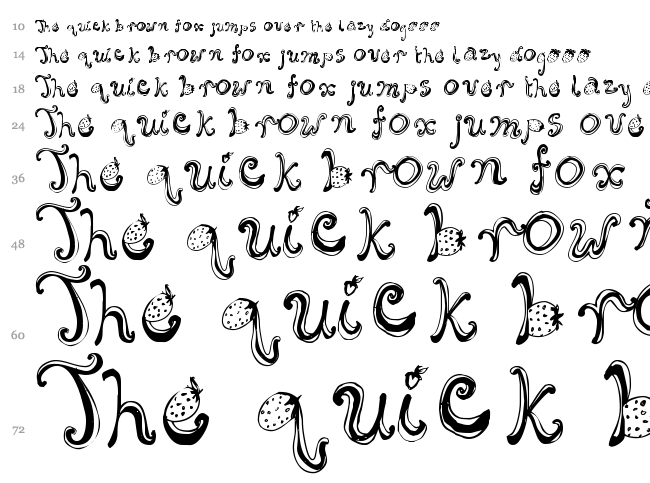 10 The quick brown fox jumps over the lazy dog
14 The quick brown fox jumps over the lazy dog
18 The quick brown fox jumps over the lazy
24 The quick brown fox jumps ove
36 The quick brown fox
48 The quick brow
60 The quick bro
72 The quick b